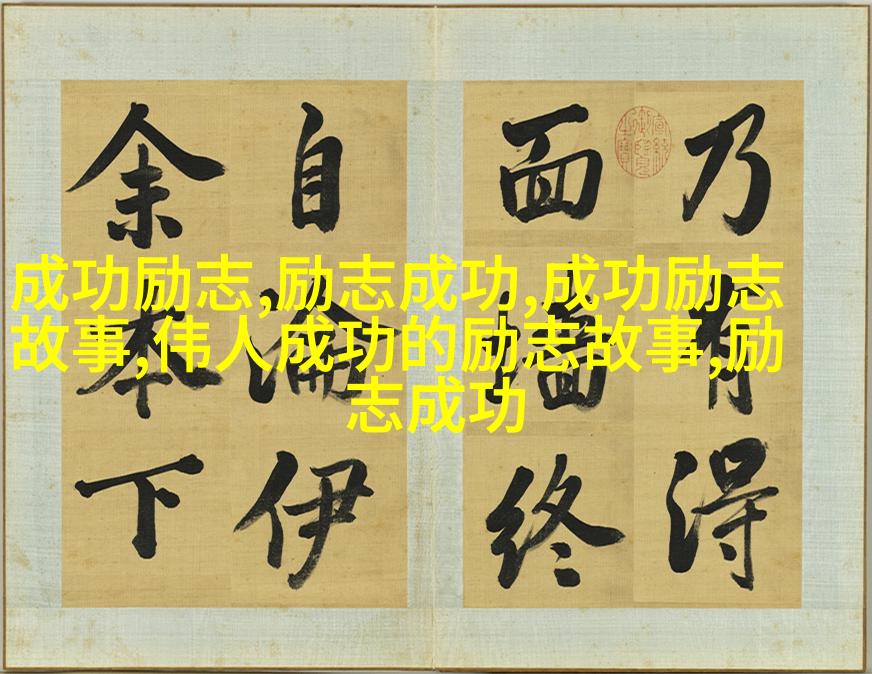 成功励志,励志成功,成功励志
故事,伟人成功的励志故事,励
志成功
乃有得
面墻終
自淪伊
余本下